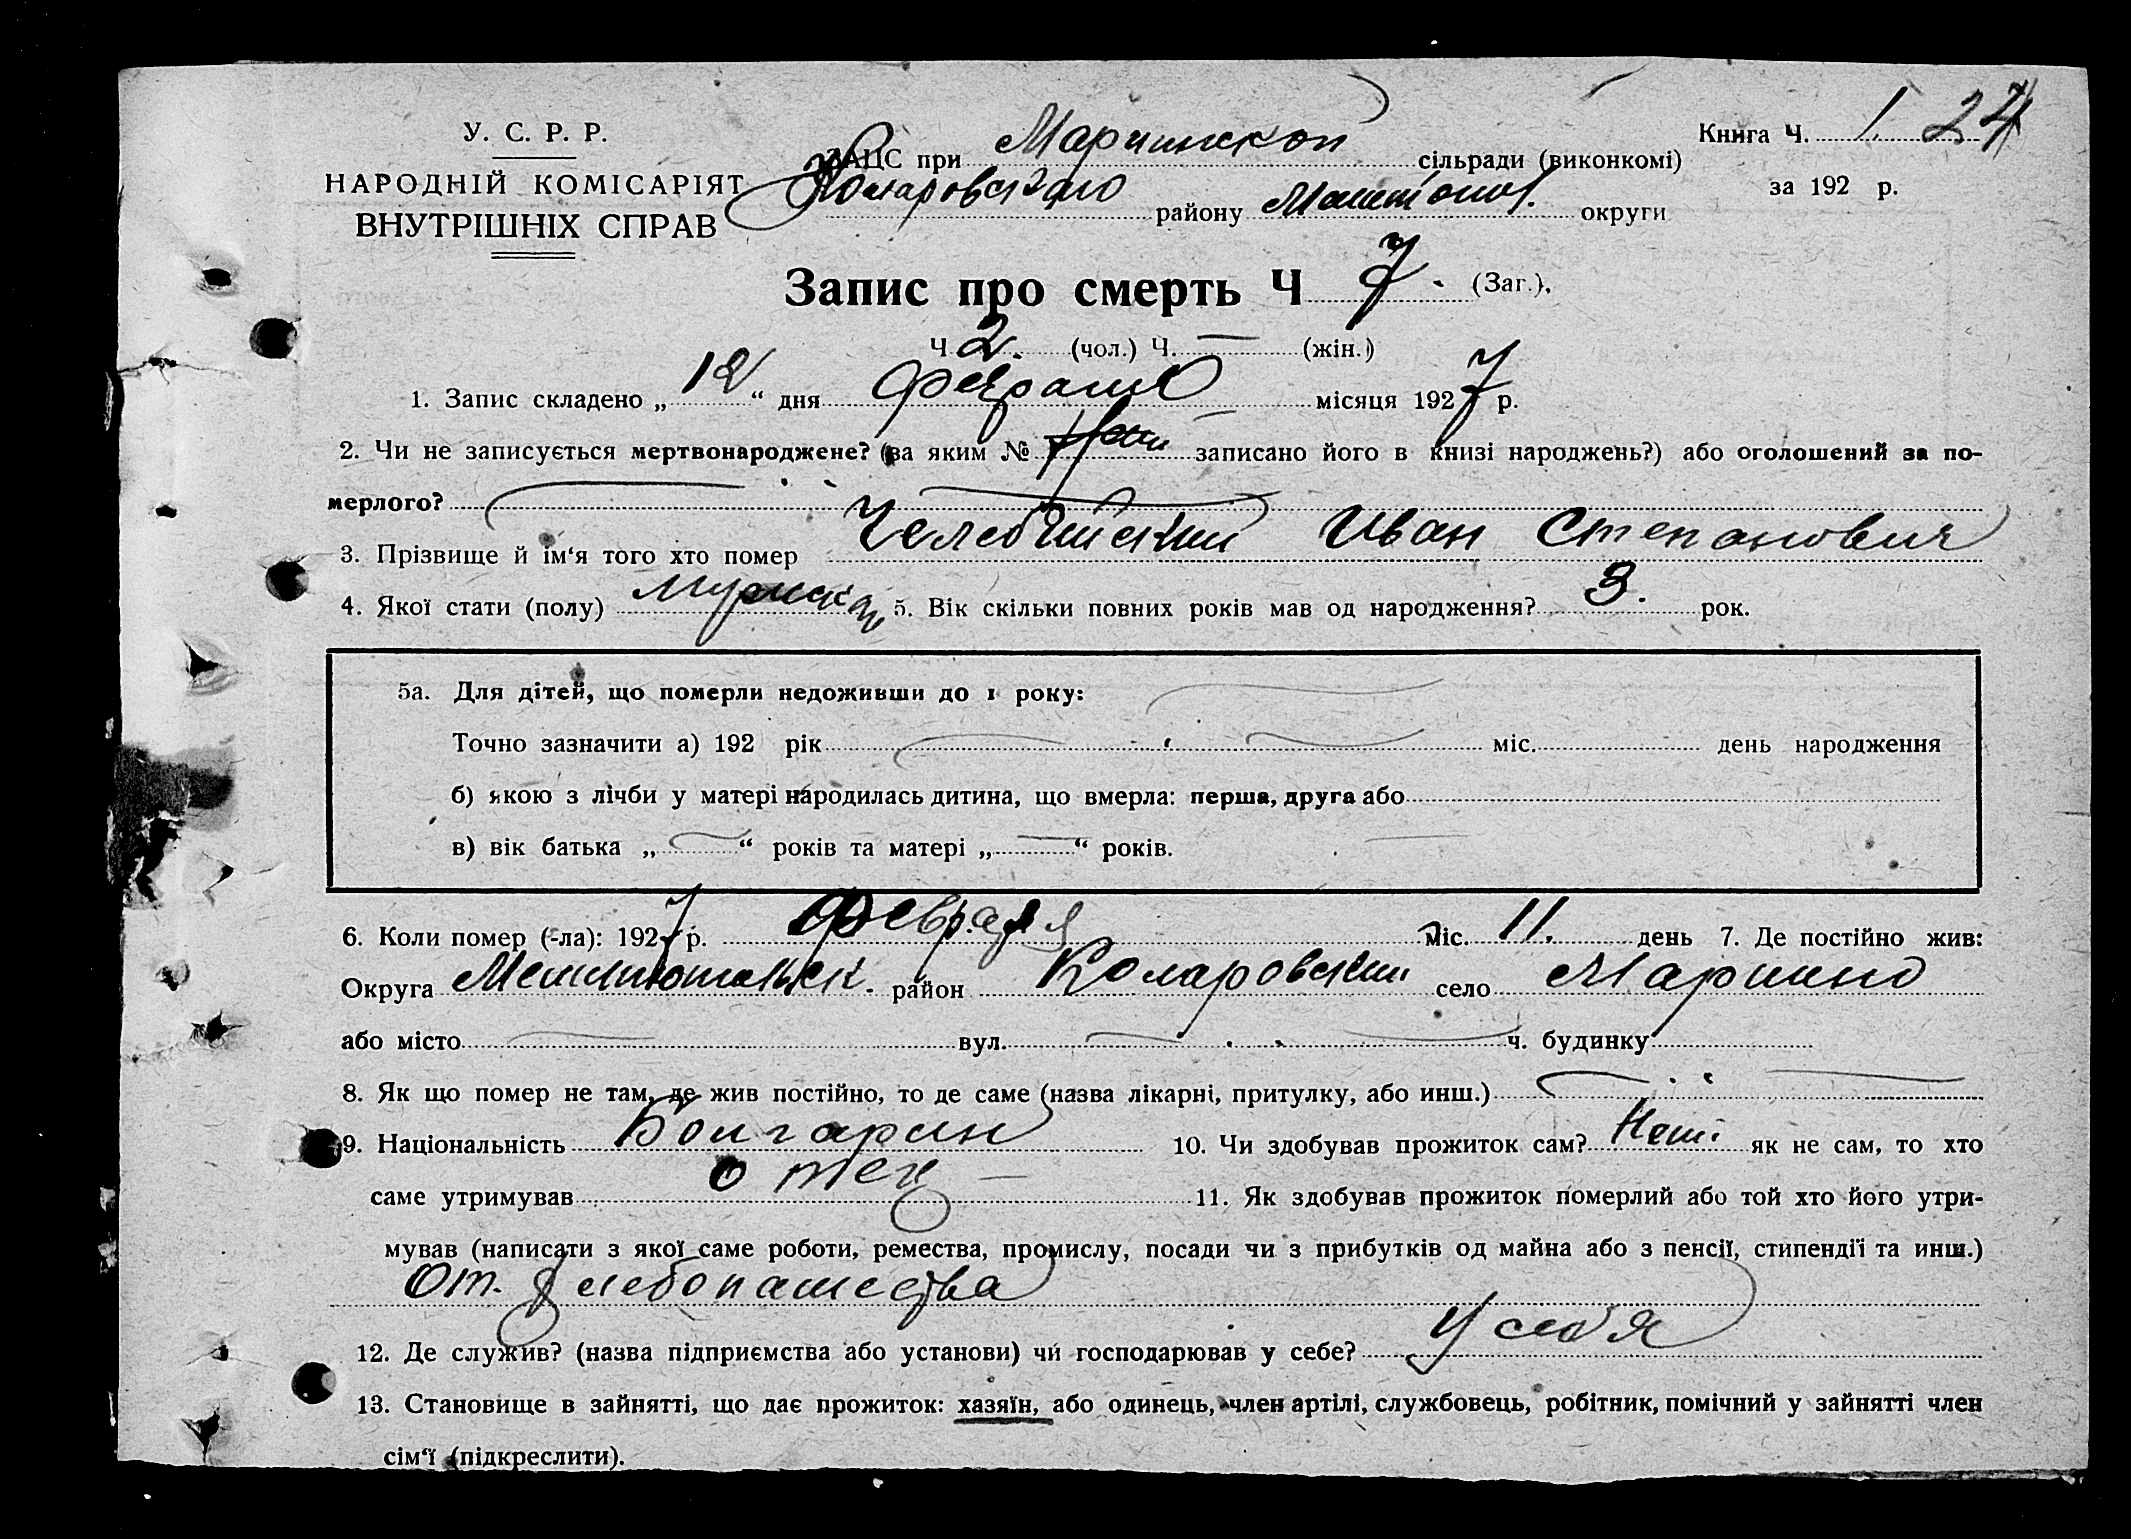 У. С. Р. Р.
НАРОДНІЙ КОМІСАРІЯТ
ВНУТРІШНІХ СПРАВ
ЗАЦС при Мариинской сільради (виконкомі)
Коларовского району округи
Книга Ч. 1. 24
за 192 р.
Запис про смерть Ч 7. (Заг.).
Ч 2. (чол.) Ч. — (жін.)
1. Запис складено „12“ дня Февраля місяця 1927 р.
2. Чи не записується мертвонароджене? (за яким № записано його в книзі народжень?) або оголошений за по-
мерлого?
3. Прізвище й ім‘я того хто помер Челебийский Иван Степанович
4. Якої стати (полу) мужской 5. Вік скільки повних років мав од народження? 3. рок.
5а. Для дітей, що померли недоживши до 1 року:
Точно зазначити а) 192 рік міс. день народження
б) якою з лічби у матері народилась дитина, що вмерла: перша, друга або
в) вік батька „ — “ років та матері „ — “ років.
6. Коли помер (-ла): 1927 р. Февраля міс. 11. день 7. Де постійно жив:
Округа район Коларовский село Марьино
або місто вул. ч. будинку
8. Як що помер не там, де жив постійно, то де саме (назва лікарні, притулку, або инш.)
9. Національність Болгарин 10. Чи здобував прожиток сам? Нет. як не сам, то хто
саме утримував отец — 11. Як здобував прожиток померлий або той хто його утри-
мував (написати з якої саме роботи, ремества, промислу, посади чи з прибутків од майна або з пенсії, стипендії та инш.)
От. Хлебопашества
12. Де служив? (назва підприємства або установи) чи господарював у себе? У себя
13. Становище в зайнятті, що дає прожиток: хазяїн, або одинець, член артілі, службовець, робітник, помічний у зайнятті член
сім‘ї (підкреслити).